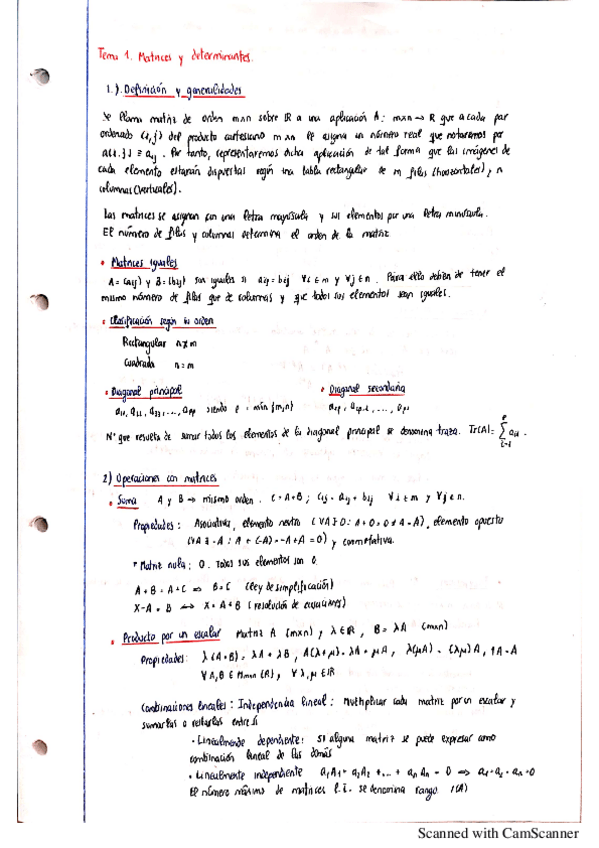 Tema 1. Matrices y determinantes.
1.). Definición y generalidades
Se llama matriz de orden mxn sobre IR a una aplicación A: mxn → R que a cada par
ordenado (i,j) del producto cartesiano mxn le asigna un número real que notaremos por
a(i,j) ≡ aij. Por tanto, representaremos dicha aplicación de tal forma que las imágenes de
cada elemento estarán dispuestas según una tabla rectangular de m filas (horizontales), n
columnas (verticales).
Las matrices se asignan con una letra mayúscula y sus elementos por una letra minúscula.
El número de filas y columnas determina el orden de la matriz
• Matrices iguales
A = (aij) y B = (bij) son iguales si aij = bij ∀i ∈ m y ∀j ∈ n. Para ello deben de tener el
mismo número de filas que de columnas y que todos sus elementos sean iguales.
• Clasificación según su orden
Rectangular n ≠ m
Cuadrada n = m
• Diagonal principal • Diagonal secundaria
a11, a22, a33, ..., app siendo p = min{m,n} a1p, a2p-1, ...,
Nº que resulta de sumar todos los elementos de la diagonal principal se denomina traza. Tr(A) = Σ aii.
2) Operaciones con matrices
• Suma A y B → mismo orden. C = A+B; cij = aij + bij ∀i ∈ m y ∀j ∈ n.
Propiedades: Asociativa, elemento neutro (∀A ∃ 0: A+0 = 0+A = A), elemento opuesto
(∀A ∃ -A: A + (-A) = -A + A = 0) y conmutativa.
• Matriz nula: 0. Todos sus elementos son 0.
A + B = A + C ⇒ B = C (ley de simplificación)
X - A = B ↔ X = A + B (resolución de ecuaciones)
• Producto por un escalar Matriz A (mxn) y λ ∈ IR, B = λA (mxn)
Propiedades: λ(A+B) = λA + λB, A(λ+μ) = λA + μA, λ(μA) = (λμ)A, 1A = A
∀A,B ∈ Mmxn (R), ∀λ,μ ∈ IR
Combinaciones lineales: Independencia lineal: Multiplicar cada matriz por un escalar y
sumarlas o restarlas entre sí
• Linealmente dependiente: si alguna matriz se puede expresar como
combinación lineal de las demás
• Linealmente independiente a1A1 + a2A2 + ... + anAn = 0 ⇒ a1 = a2 = an = 0
El número máximo de matrices l.i. se denomina rango r(A)
Scanned with CamScanner